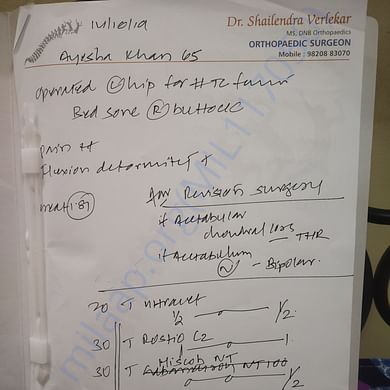 Dr. Shailendra Verlekar
MS, DNB Orthopaedics
ORTHOPAEDIC SURGEON
Mobile : 98208 83070
Ayesha Khan 65
operated L hip for # TC
Bed sore R buttock
pain ++
flexion deformity +
creat 1.87
for Revision surgery
if Acetabular
chondral loss
- THR
if Acetabulum
N - Bipolar.
20 T Ultracet
1/2 — o — 1/2.
30 T
30 T